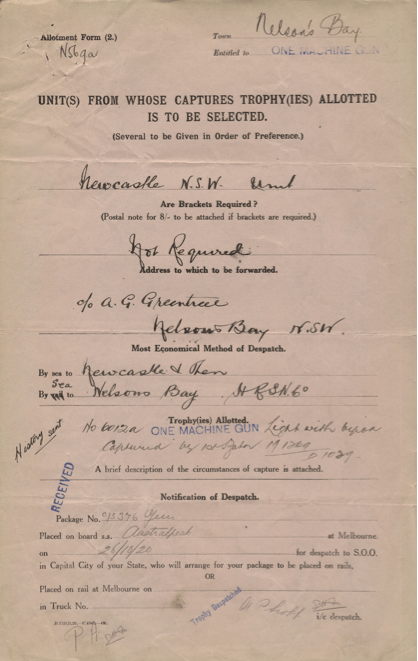 Allotment Form (2.)
N569a
Town Nelson's Bay
Entitled to ONE MACHINE GUN
UNIT(S) FROM WHOSE CAPTURES TROPHY(IES) ALLOTTED
IS TO BE SELECTED.
(Several to be Given in Order of Preference.)
Newcastle N.S.W. Unit
Are Brackets Required?
(Postal note for 8/- to be attached if brackets are required.)
Not Required
Address to which to be forwarded.
c/o A. G. Greentree
Nelson's Bay N.SW.
Most Economical Method of Despatch.
By sea to Newcastle & Then
By Sea to Nelsons Bay
Trophy(ies) Allotted.
History sent
ONE MACHINE GUN Light with
Captured by
A brief description of the circumstances of capture is attached.
RECEIVED
Notification of Despatch.
Package No. Gun
Placed on board s.s. at Melbourne
on for despatch to S.O.O.
in Capital City of your State, who will arrange for your package to be placed on rails,
OR
Placed on rail at Melbourne on
in Truck No.
Trophy Despatched
i/c despatch.